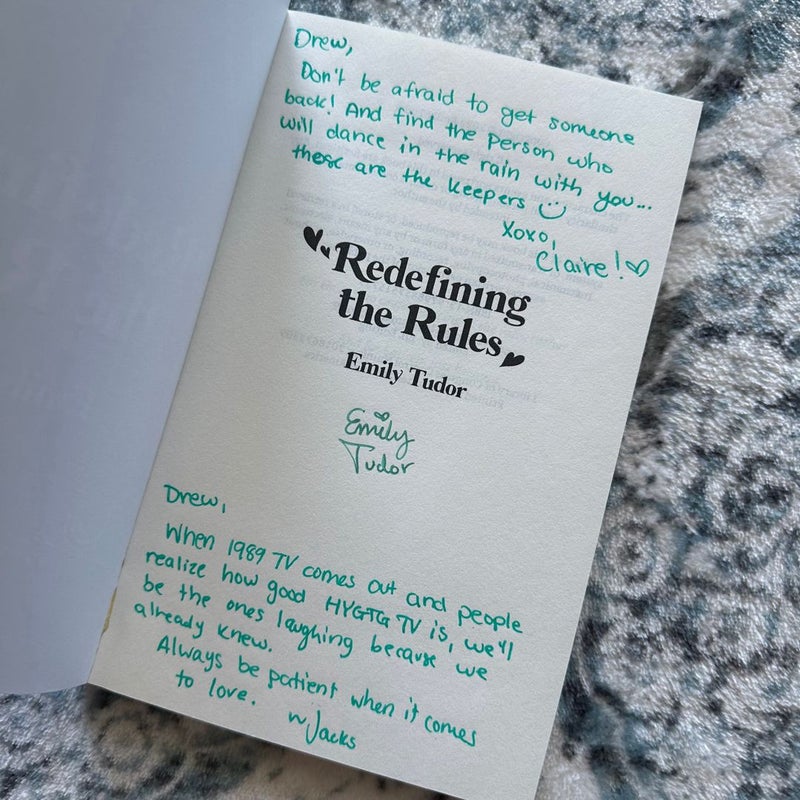 Drew,
Don't be afraid to get someone
back! And find the person who
will dance in the rain with you...
those are the keepers
xoxo,
Claire!
Redefining
the Rules
Emily Tudor
Emily
Tudor
Drew,
When 1989 TV comes out and people
realize how good HYGTG TV is, we'll
be the ones laughing because we
already knew.
Always be patient when it comes
to love.
~Jacks